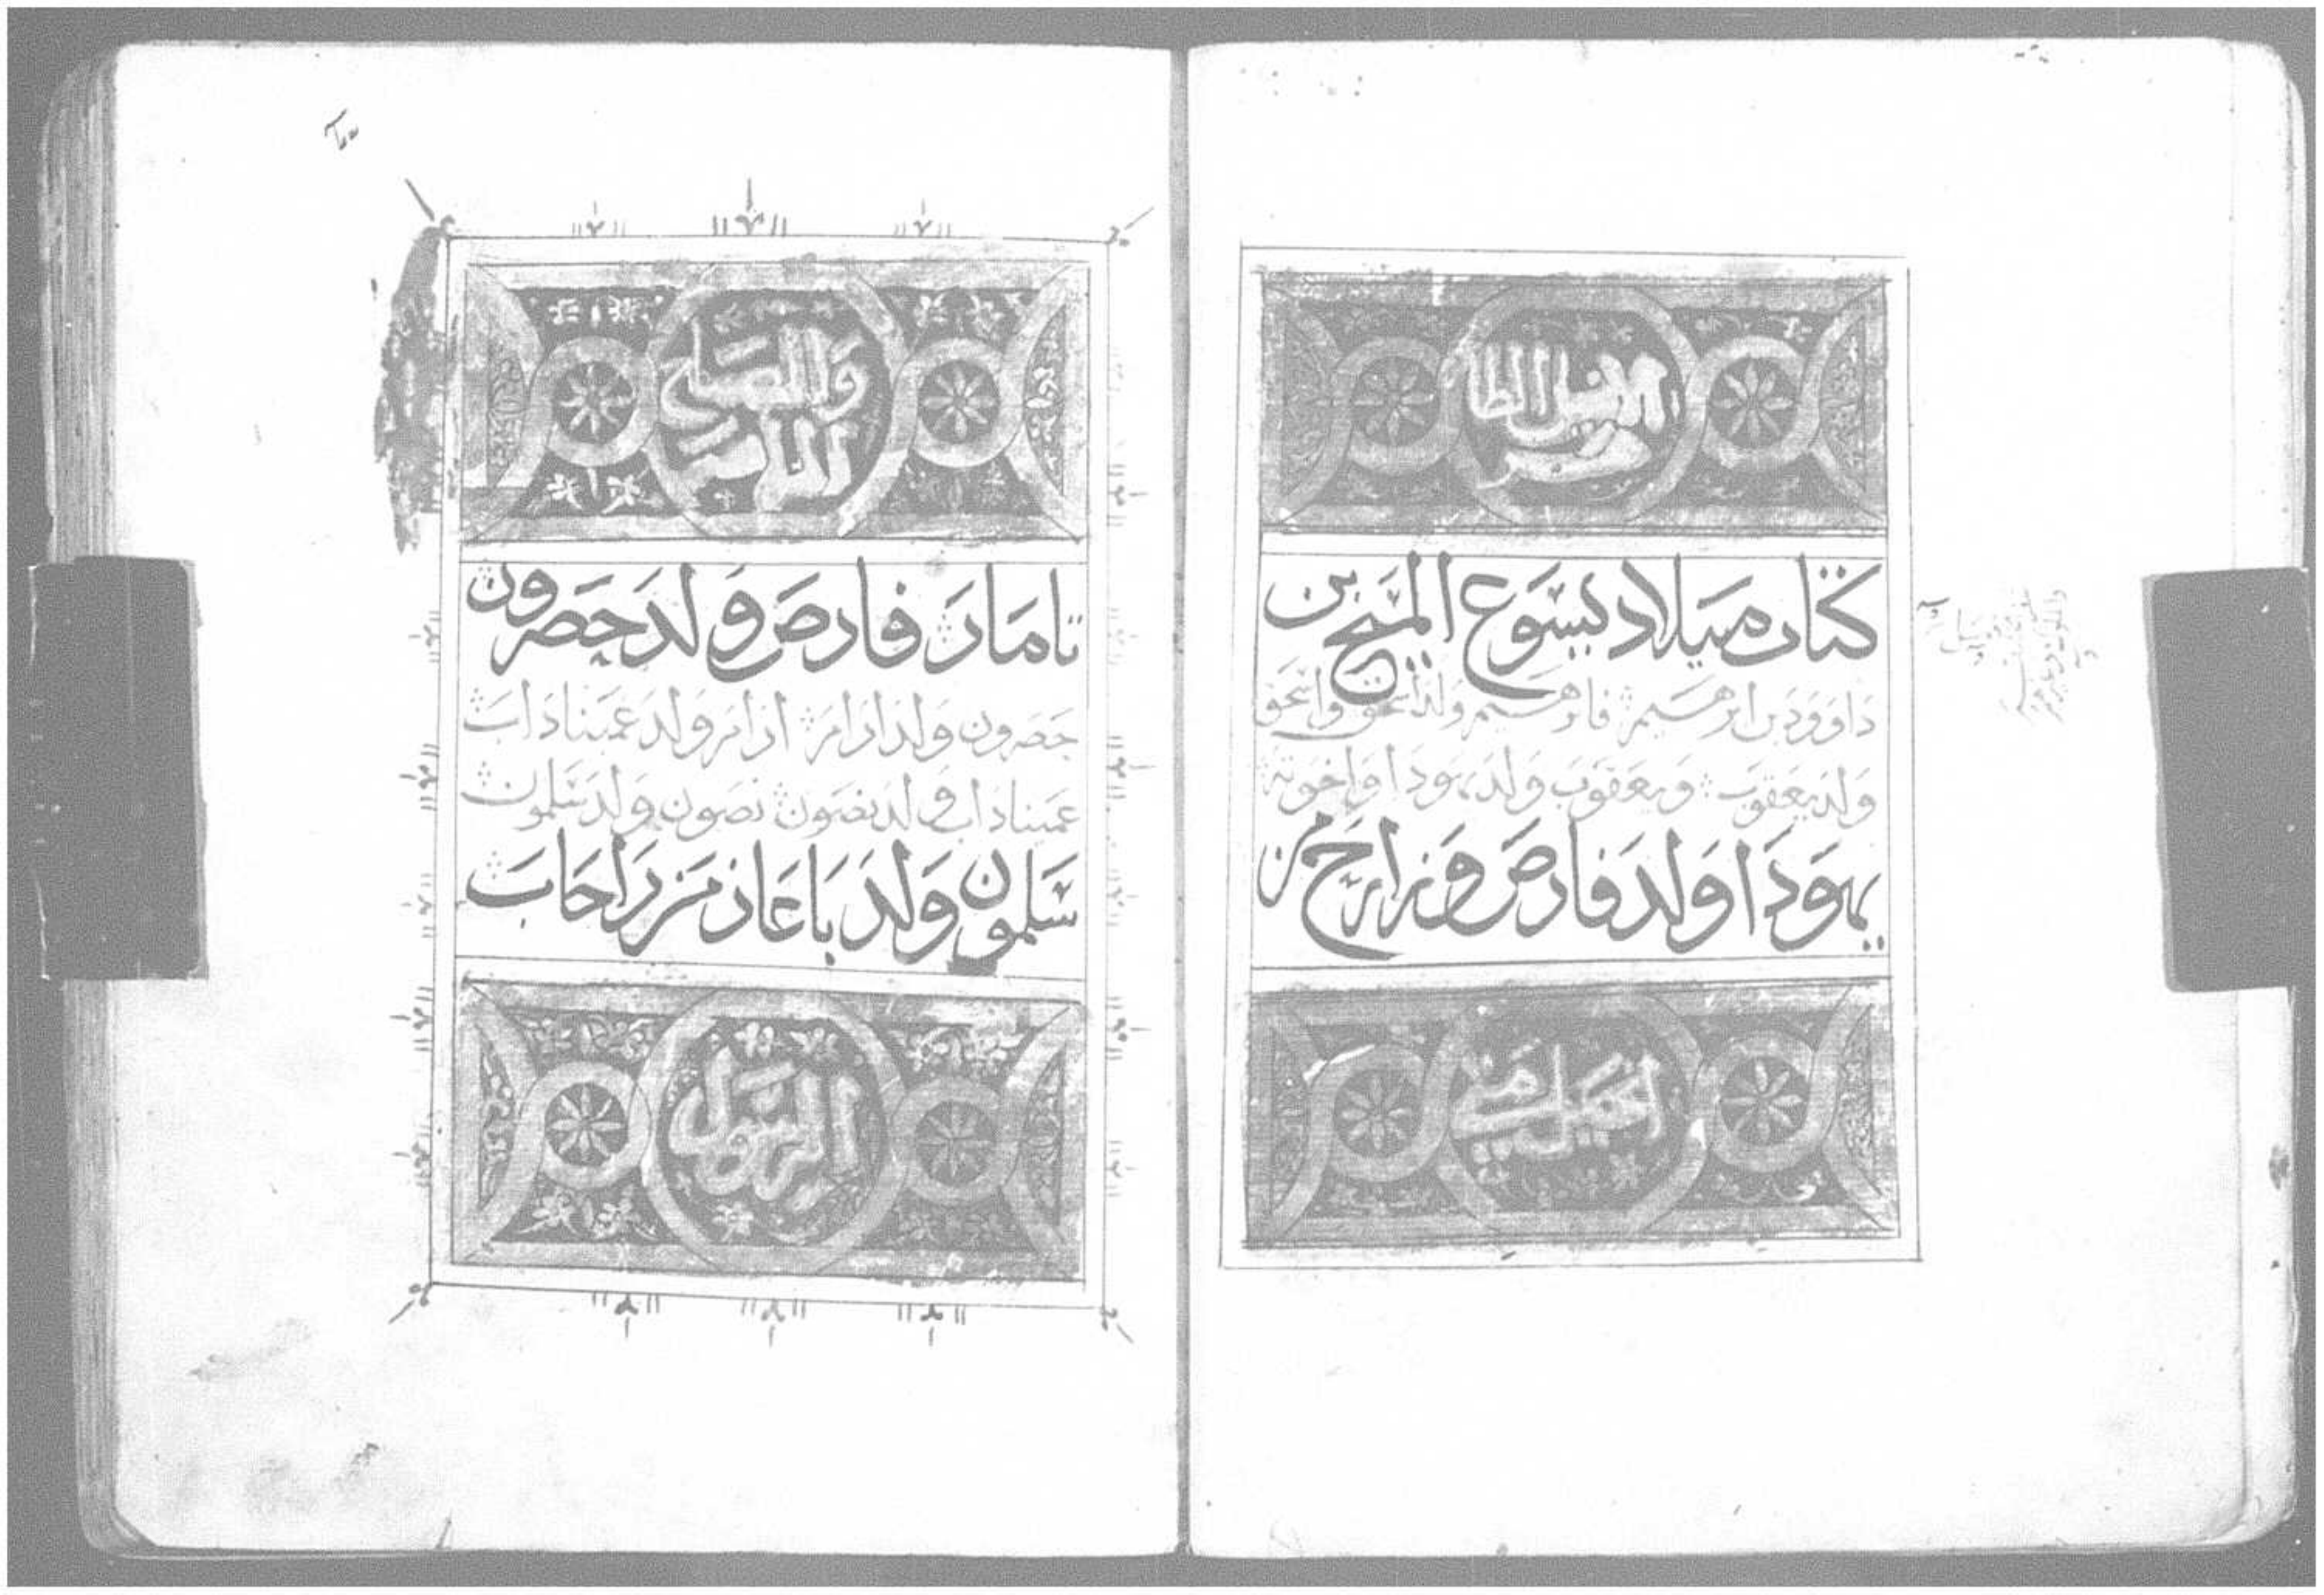 كتاب ميلاد يسوع المسيح بن
داوود بن ابرهيم فابرهيم ولد اسحق واسحق
ولد يعقوب ويعقوب ولد يهودا واخوته
يهودا ولد فارص وزارح من
انجيل متي
تامار فارص ولد حصرون
حصرون ولد ارام ارام ولد عميناداب
عميناداب ولد نصون نصون ولد سلمون
سلمون ولد باعاز من راحاب
الرسول